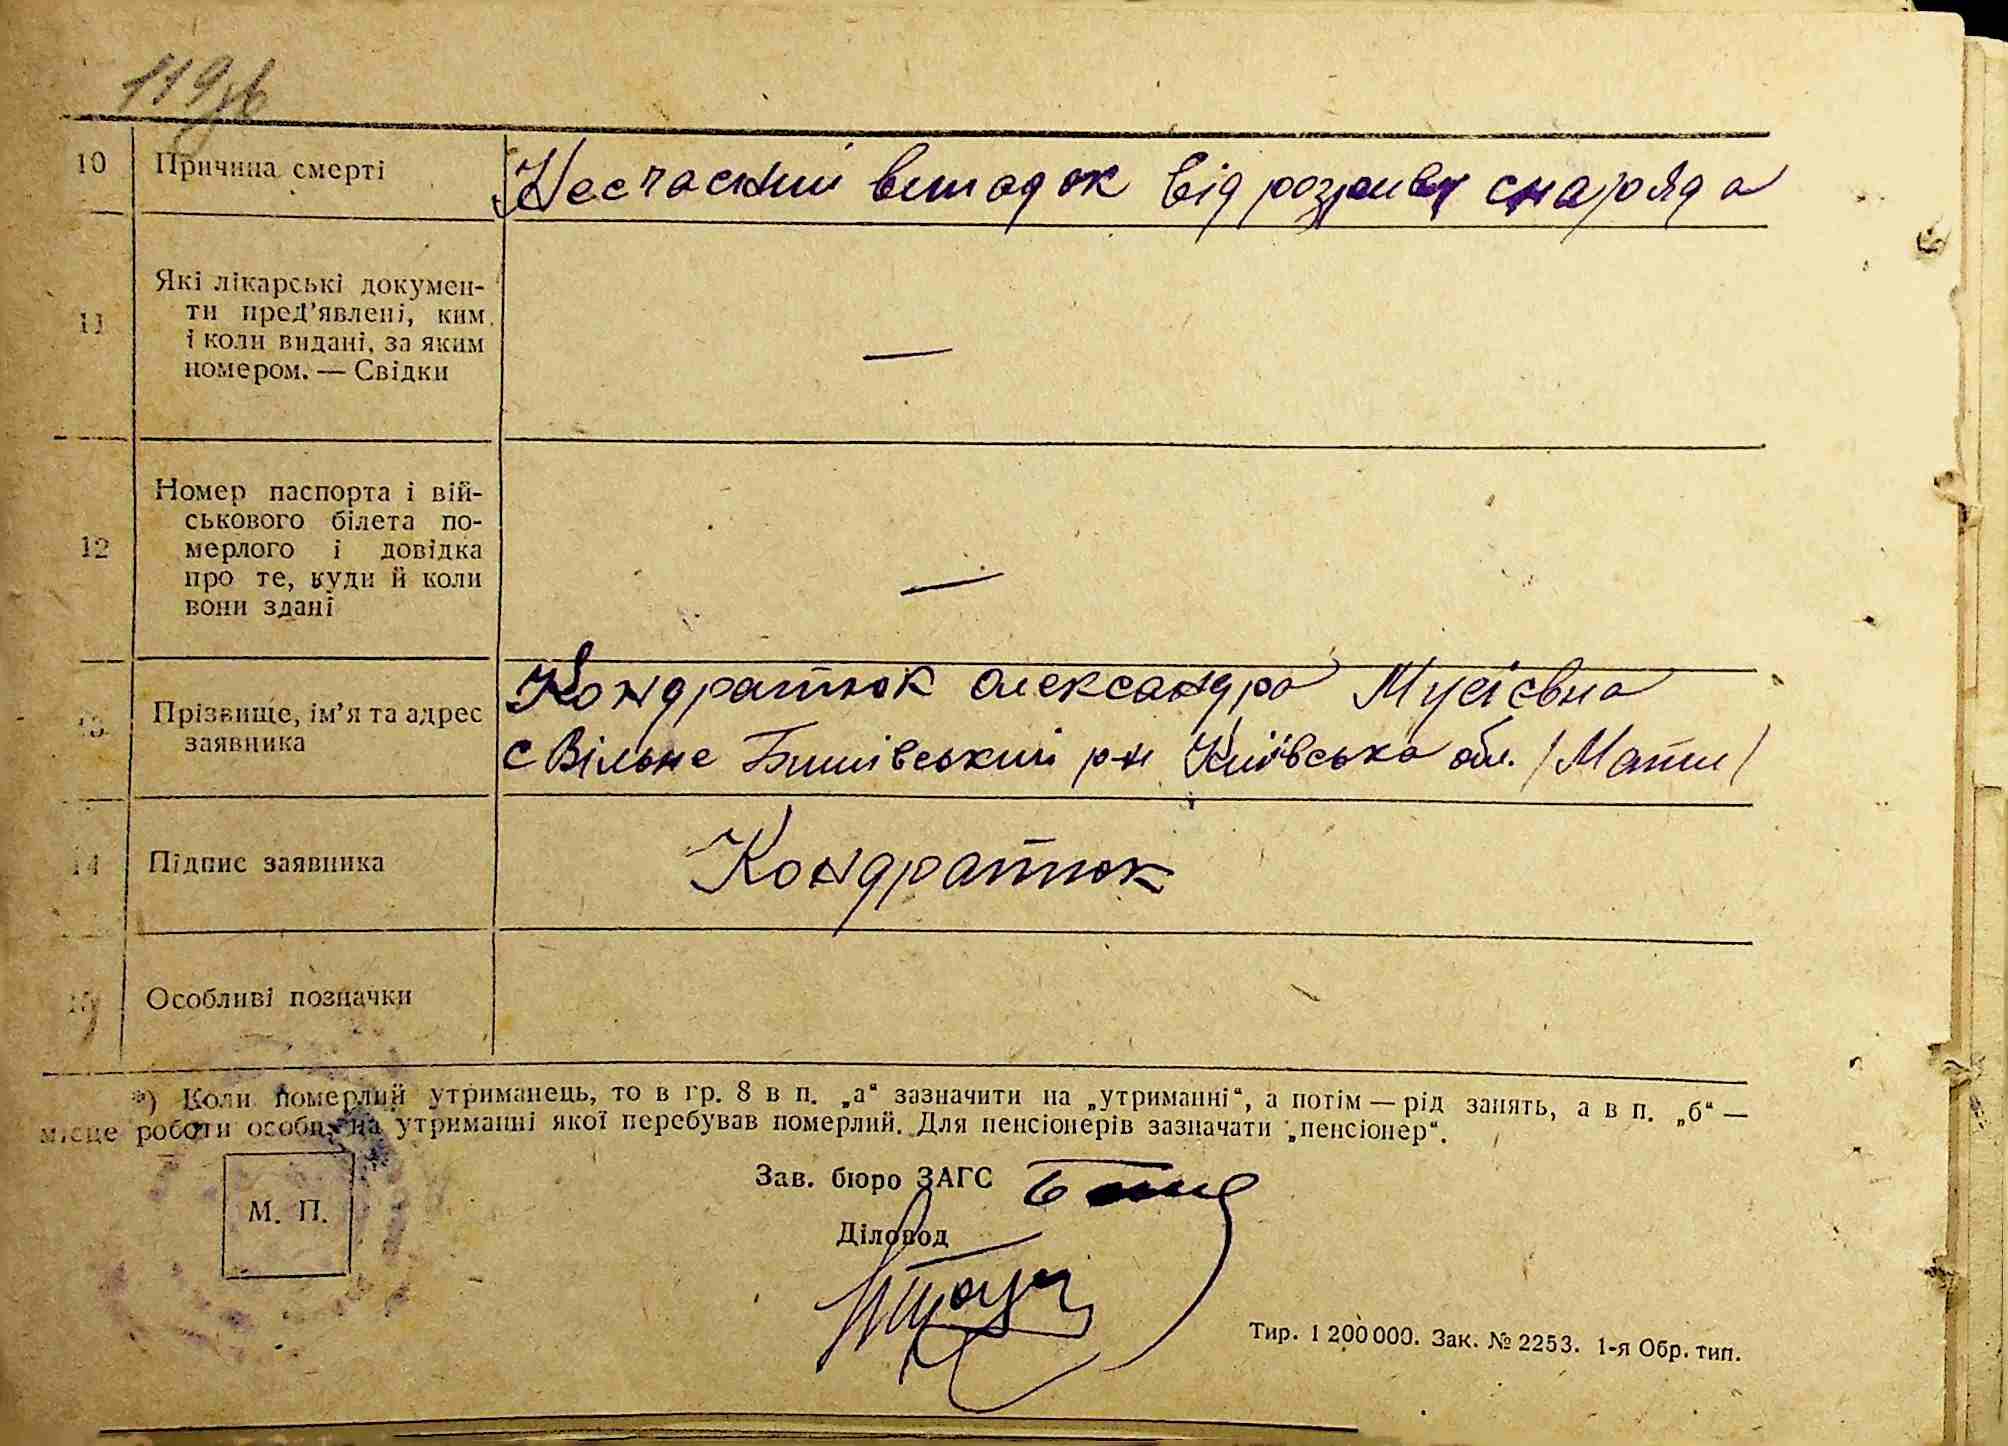 119зв
10 Причина смерті Несчасний випадок від розриву снаряда
11 Які лікарські докумен-
ти пред'явлені, ким
і коли видані, за яким
номером. — Свідки —
12 Номер паспорта і вій-
ськового білета по-
мерлого і довідка
про те, куди й коли
вони здані —
13 Прізвище, ім'я та адрес
заявника
Кондратюк Олександра Мусієвна
с Вільне Бишівський р-н Київська обл. /Мати/
14 Підпис заявника Кондратюк
15 Особливі позначки
*) Коли померлий утриманець, то в гр. 8 в п. „а“ зазначити на „утриманні“, а потім — рід занять, а в п. „б“ —
місце роботи особи, на утриманні якої перебував померлий. Для пенсіонерів зазначати „пенсіонер“.
М. П.
Зав. бюро ЗАГС
Діловод
Тир. 1 200 000. Зак. № 2253. 1-я Обр. тип.